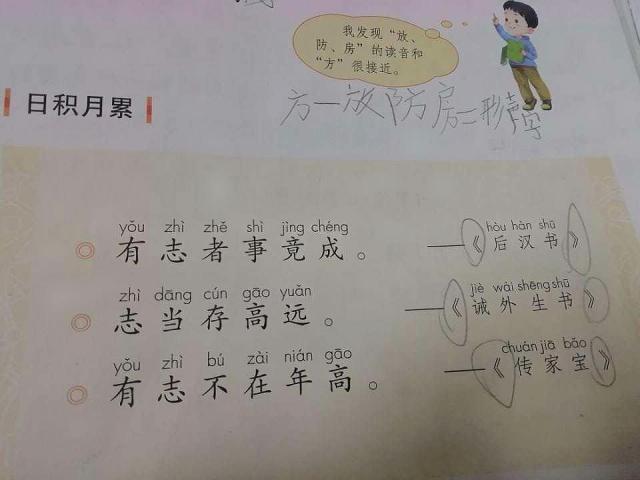 我发现“放、
防、房”的读音和
“方”很接近。
方一放防房二形声字
日积月累
yǒu zhì zhě shì jìng chéng hòu hàn shū
有志者事竟成。 ——《后汉书》
zhì dāng cún gāo yuǎn jiè wài shēng shū
志当存高远。 ——《诫外生书》
yǒu zhì bú zài nián gāo chuán jiā bǎo
有志不在年高。 ——《传家宝》